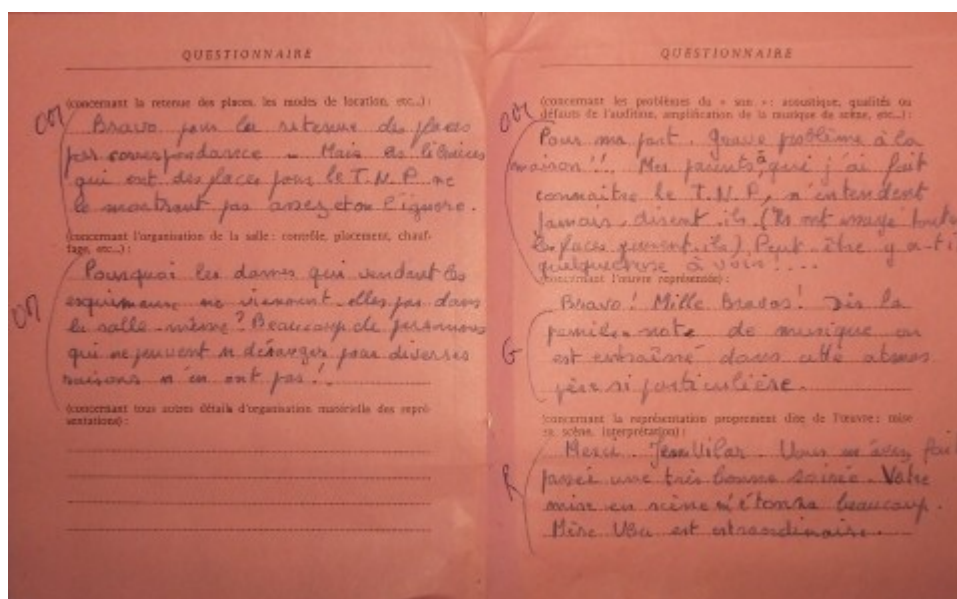 QUESTIONNAIRE
(concernant la retenue des places, les modes de location, etc...) :
OM
Bravo pour la retenue des places
par correspondance - Mais les libraires
qui ont des places pour le T.N.P. ne
le montrent pas assez et on l'ignore.
(concernant l'organisation de la salle : contrôle, placement, chauf-
fage, etc...) :
OM
Pourquoi les dames qui vendent les
esquimaux ne viennent-elles pas dans
la salle même ? Beaucoup de personnes
qui ne peuvent se déranger pour diverses
raisons n'en ont pas !
(concernant tous autres détails d'organisation matérielle des repré-
sentations) :
QUESTIONNAIRE
(concernant les problèmes du « son » : acoustique, qualités ou
défauts de l'audition, amplification de la musique de scène, etc...) :
OM
Pour ma part. Grave problème à la
maison !! Mes parents, à qui j'ai fait
connaître le T.N.P., n'entendent
jamais, disent-ils. (Ils ont essayé toutes
les places, ). Peut-être y a-t-i
quelque chose à voir !...
(concernant l'œuvre représentée) :
G
Bravo ! Mille Bravos ! Dès la
première note de musique on
est entraîné dans cette atmos
père si particulière.
(concernant la représentation proprement dite de l'œuvre : mise
en scène, interprétation) :
R
Merci Jean Vilar. Vous m'avez fait
passée une très bonne soirée. Votre
mise en scène m'étonne beaucoup.
Mère Ubu est extraordinaire.